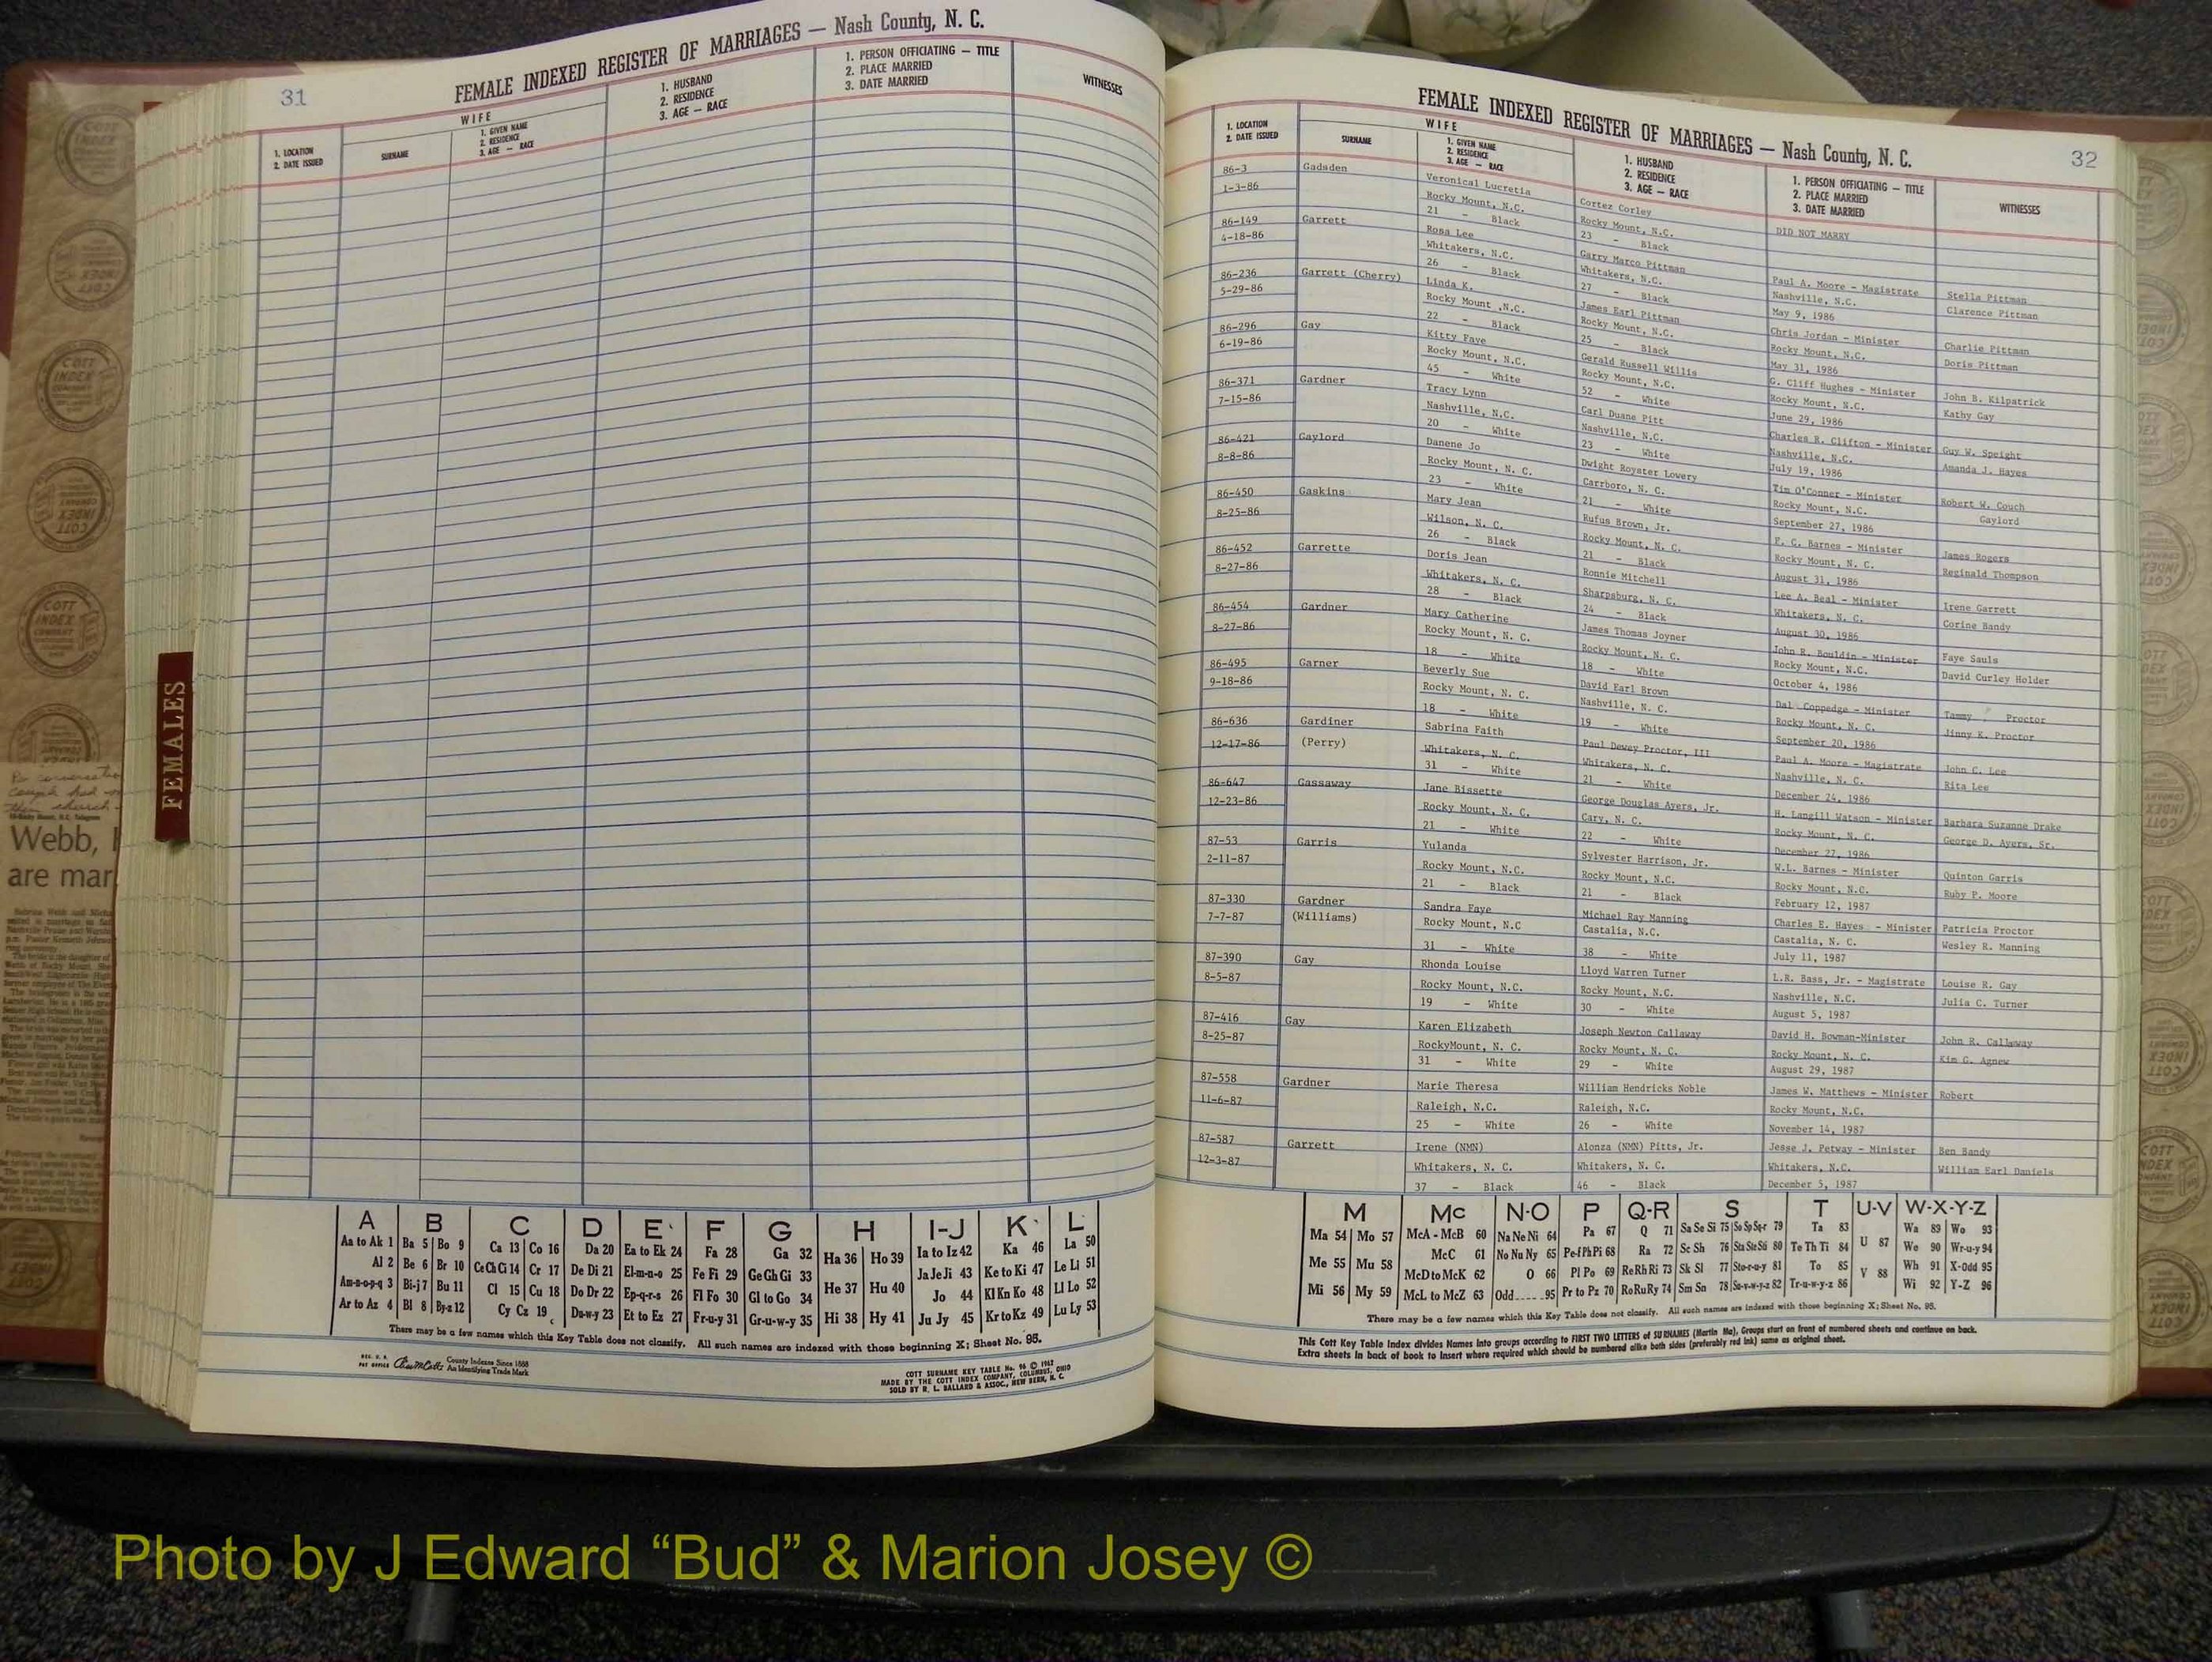 31
FEMALE INDEXED REGISTER OF MARRIAGES — Nash County, N. C.
1. LOCATION
2. DATE ISSUED
WIFE
SURNAME
1. GIVEN NAME
2. RESIDENCE
3. AGE — RACE
1. HUSBAND
2. RESIDENCE
3. AGE — RACE
1. PERSON OFFICIATING — TITLE
2. PLACE MARRIED
3. DATE MARRIED
WITNESSES
FEMALES
Webb,
are mar
A B C D E F G H I-J K L
Aa to Ak 1 Ba 5 Bo 9 Ca 13 Co 16 Da 20 Ea to Ek 24 Fa 28 Ga 32 Ha 36 Ho 39 Ia to Iz 42 Ka 46 La 50
Al 2 Be 6 Br 10 Ce Ch Ci 14 Cr 17 De Di 21 El-m-n-o 25 Fe Fi 29 Ge Gh Gi 33 He 37 Hu 40 Ja Je Ji 43 Ke to Ki 47 Le Li 51
Am-n-o-p-q 3 Bi-j 7 Bu 11 Cl 15 Cu 18 Do Dr 22 Ep-q-r-s 26 Fl Fo 30 Gl to Go 34 Hi 38 Hy 41 Jo 44 Kl Kn Ko 48 Ll Lo 52
Ar to Az 4 Bl 8 By-z 12 Cy Cz 19 Du-w-y 23 Et to Ez 27 Fr-u-y 31 Gr-u-w-y 35 Ju Jy 45 Kr to Kz 49 Lu Ly 53
There may be a few names which this Key Table does not classify. All such names are indexed with those beginning X; Sheet No. 95.
County Indexes Since 1888
An Identifying Trade Mark
COTT SURNAME KEY TABLE No. 96 © 1962
MADE BY THE COTT INDEX COMPANY, COLUMBUS, OHIO
SOLD BY R. L. BALLARD & ASSOC., NEW BERN, N. C.
FEMALE INDEXED REGISTER OF MARRIAGES — Nash County, N. C.
32
1. LOCATION
2. DATE ISSUED
WIFE
SURNAME
1. GIVEN NAME
2. RESIDENCE
3. AGE — RACE
1. HUSBAND
2. RESIDENCE
3. AGE — RACE
1. PERSON OFFICIATING — TITLE
2. PLACE MARRIED
3. DATE MARRIED
WITNESSES
86-3 Gadsden Veronical Lucretia Cortez Corley DID NOT MARRY
1-3-86 Rocky Mount, N.C. Rocky Mount, N.C.
21 - Black 23 - Black
86-149 Garrett Rosa Lee Garry Marco Pittman Paul A. Moore - Magistrate Stella Pittman
4-18-86 Whitakers, N.C. Whitakers, N.C. Nashville, N.C. Clarence Pittman
26 - Black 27 - Black May 9, 1986
86-236 Garrett (Cherry) Linda K. James Earl Pittman Chris Jordan - Minister Charlie Pittman
5-29-86 Rocky Mount ,N.C. Rocky Mount, N.C. Rocky Mount, N.C. Doris Pittman
22 - Black 25 - Black May 31, 1986
86-296 Gay Kitty Faye Gerald Russell Willis G. Cliff Hughes - Minister John B. Kilpatrick
6-19-86 Rocky Mount, N.C. Rocky Mount, N.C. Rocky Mount, N.C. Kathy Gay
45 - White 52 - White June 29, 1986
86-371 Gardner Tracy Lynn Carl Duane Pitt Charles R. Clifton - Minister Guy W. Speight
7-15-86 Nashville, N.C. Nashville, N.C. Nashville, N.C. Amanda J. Hayes
20 - White 23 - White July 19, 1986
86-421 Gaylord Danene Jo Dwight Royster Lowery Tim O'Conner - Minister Robert W. Couch
8-8-86 Rocky Mount, N. C. Carrboro, N. C. Rocky Mount, N.C. Gaylord
23 - White 21 - White September 27, 1986
86-450 Gaskins Mary Jean Rufus Brown, Jr. E. C. Barnes - Minister James Rogers
8-25-86 Wilson, N. C. Rocky Mount, N. C. Rocky Mount, N. C. Reginald Thompson
26 - Black 21 - Black August 31, 1986
86-452 Garrette Doris Jean Ronnie Mitchell Lee A. Beal - Minister Irene Garrett
8-27-86 Whitakers, N. C. Sharpsburg, N. C. Whitakers, N. C. Corine Bandy
28 - Black 24 - Black August 30, 1986
86-454 Gardner Mary Catherine James Thomas Joyner John R. Bouldin - Minister Faye Sauls
8-27-86 Rocky Mount, N. C. Rocky Mount, N. C. Rocky Mount, N.C. David Curley Holder
18 - White 18 - White October 4, 1986
86-495 Garner Beverly Sue David Earl Brown Dal Coppedge - Minister Tammy Proctor
9-18-86 Rocky Mount, N. C. Nashville, N. C. Rocky Mount, N. C. Jinny K. Proctor
18 - White 19 - White September 20, 1986
86-636 Gardiner Sabrina Faith Paul Dewey Proctor, III Paul A. Moore - Magistrate John C. Lee
12-17-86 (Perry) Whitakers, N. C. Whitakers, N. C. Nashville, N. C. Rita Lee
31 - White 21 - White December 24, 1986
86-647 Gassaway Jane Bissette George Douglas Ayers, Jr. H. Langill Watson - Minister Barbara Suzanne Drake
12-23-86 Rocky Mount, N. C. Cary, N. C. Rocky Mount, N. C. George D. Ayers, Sr.
21 - White 22 - White December 27, 1986
87-53 Garris Yulanda Sylvester Harrison, Jr. W.L. Barnes - Minister Quinton Garris
2-11-87 Rocky Mount, N.C. Rocky Mount, N.C. Rocky Mount, N.C. Ruby P. Moore
21 - Black 21 - Black February 12, 1987
87-330 Gardner Sandra Faye Michael Ray Manning Charles E. Hayes - Minister Patricia Proctor
7-7-87 (Williams) Rocky Mount, N.C Castalia, N.C. Castalia, N. C. Wesley R. Manning
31 - White 38 - White July 11, 1987
87-390 Gay Rhonda Louise Lloyd Warren Turner L.R. Bass, Jr. - Magistrate Louise R. Gay
8-5-87 Rocky Mount, N.C. Rocky Mount, N.C. Nashville, N.C. Julia C. Turner
19 - White 30 - White August 5, 1987
87-416 Gay Karen Elizabeth Joseph Newton Callaway David H. Bowman-Minister John R. Callaway
8-25-87 RockyMount, N. C. Rocky Mount, N. C. Rocky Mount, N. C. Kim G. Agnew
31 - White 29 - White August 29, 1987
87-558 Gardner Marie Theresa William Hendricks Noble James W. Matthews - Minister Robert
11-6-87 Raleigh, N.C. Raleigh, N.C. Rocky Mount, N.C.
25 - White 26 - White November 14, 1987
87-587 Garrett Irene (NMN) Alonza (NMN) Pitts, Jr. Jesse J. Petway - Minister Ben Bandy
12-3-87 Whitakers, N. C. Whitakers, N. C. Whitakers, N.C. William Earl Daniels
37 - Black 46 - Black December 5, 1987
M Mc N-O P Q-R S T U-V W-X-Y-Z
Ma 54 Mo 57 McA - McB 60 Na Ne Ni 64 Pa 67 Q 71 Sa Se Si 75 So Sp Sq-r 79 Ta 83 U 87 Wa 89 Wo 93
Me 55 Mu 58 McC 61 No Nu Ny 65 Pe-f Ph Pi 68 Ra 72 Sc Sh 76 Sta Ste Sti 80 Te Th Ti 84 V 88 We 90 Wr-u-y 94
Mi 56 My 59 McD to McK 62 O 66 Pl Po 69 Re Rh Ri 73 Sk Sl 77 Sto-r-u-y 81 To 85 Wh 91 X-Odd 95
McL to McZ 63 Odd......95 Pr to Pz 70 Ro Ru Ry 74 Sm Sn 78 Su-v-w-y-z 82 Tr-u-w-y-z 86 Wi 92 Y-Z 96
There may be a few names which this Key Table does not classify. All such names are indexed with those beginning X; Sheet No. 95.
This Cott Key Table Index divides Names into groups according to FIRST TWO LETTERS of SURNAMES (Martin Ma), Groups start on front of numbered sheets and continue on back.
Extra sheets in back of book to insert where required which should be numbered alike both sides (preferably red ink) same as original sheet.
Photo by J Edward “Bud” & Marion Josey ©